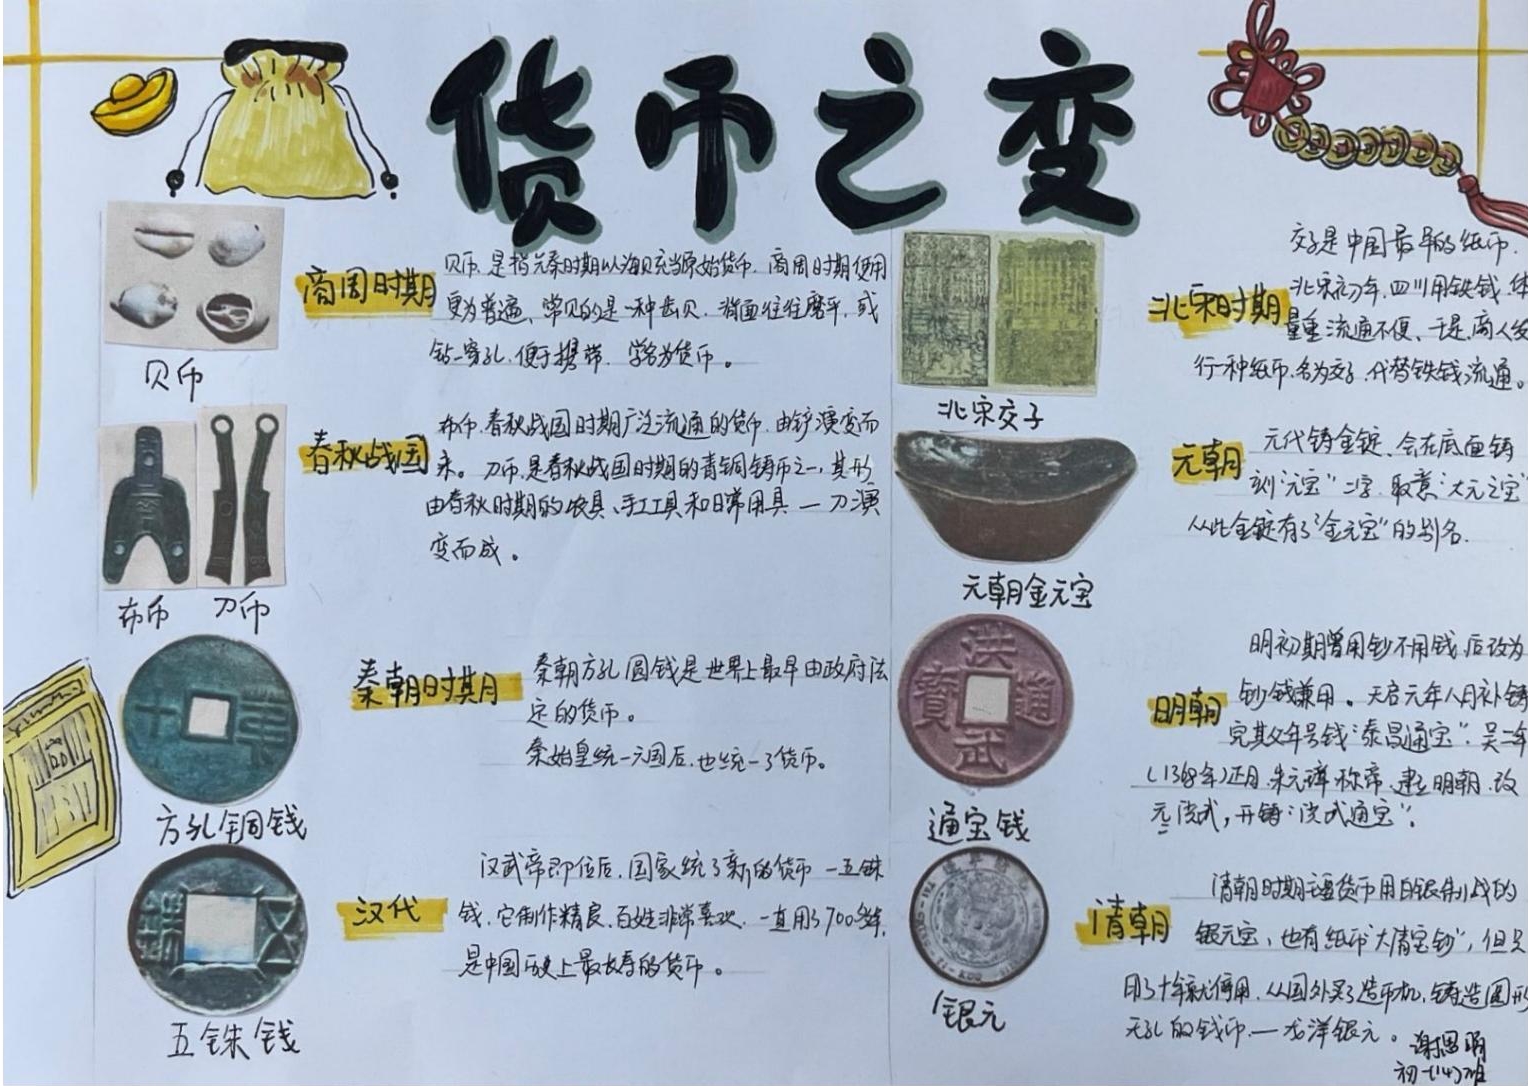 货币之变
商周时期
贝币,是指先秦时期以海贝充当原始货币,商周时期使用
更为普遍、常见的是一种齿贝.背面往往磨平,或
钻一穿孔,便于携带.学名为货币。
贝币
春秋战国
布币,春秋战国时期广泛流通的货币,由铲演变而
来。刀币,是春秋战国时期的青铜铸币之一,其形
由春秋时期的农具、手工具和日常用具一刀演
变而成。
布币 刀币
秦朝时期
秦朝方孔圆钱是世界上最早由政府法
定的货币。
秦始皇统一六国后,也统一了货币。
方孔铜钱
汉代
汉武帝即位后,国家统了新的货币一五铢
钱,它制作精良,百姓非常喜欢,一直用了700多年,
是中国历史上最长寿的货币。
五铢钱
北宋时期
交子是中国最早的纸币,
北宋初年,四川用铁钱,体
量重流通不便、于是,商人发
行一种纸币,名为交子,代替铁钱流通。
北宋交子
元朝
元代铸金锭,会在底面铸
刻"元宝"二字,取意"大元之宝"
从此金锭有了"金元宝"的别名.
元朝金元宝
明朝
明初期曾用钞不用钱,后改为
钞钱兼用。天启元年八月补铸
完其父年号钱"泰昌通宝".吴二年
(1368年)正月,朱元璋称帝,建立明朝,改
元洪武,开铸"洪武通宝".
洪武通寶
通宝钱
清朝
清朝时期主要货币用白银制成的
银元宝,也有纸币"大清宝钞",但只
用了十年就停用,从国外买了造币机,铸造圆形
无孔的钱币.一龙洋银元。
银元
初一(14)班